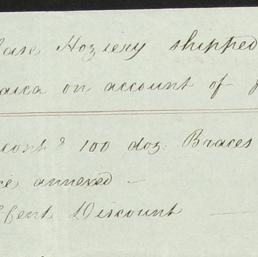 Case Hoziery shipped
aica on account of
cont? 100 doz. Braces
ce annexed —
Cent Discount —